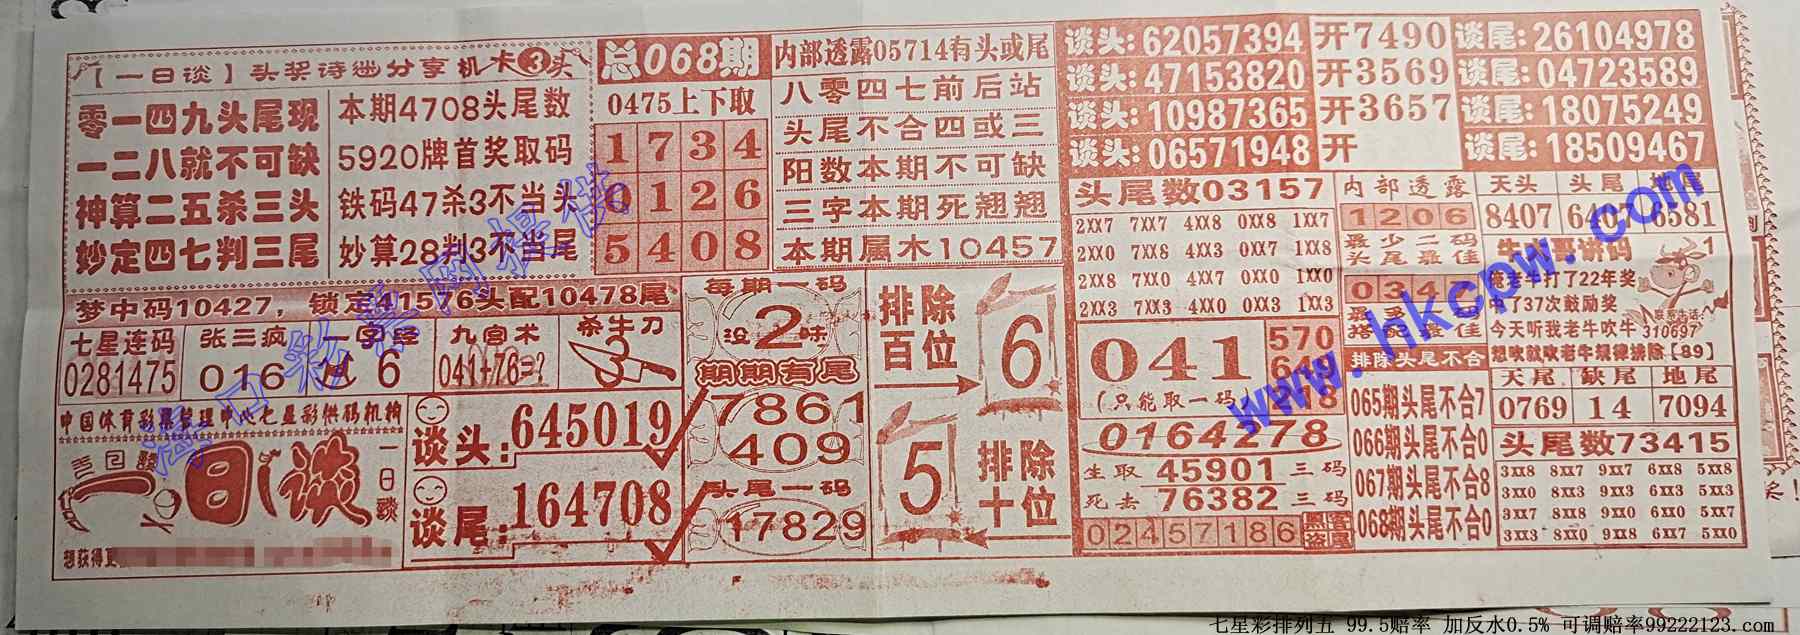 【一日谈】头奖诗谜分享机卡3头
零一四九头尾现
一二八就不可缺
神算二五杀三头
妙定四七判三尾
本期4708头尾数
5920牌首奖取码
铁码47杀3不当头
妙算28判3不当尾
总068期
0475上下取
1 7 3 4
0 1 2 6
5 4 0 8
内部透露05714有头或尾
八零四七前后站
头尾不合四或三
阳数本期不可缺
三字本期死翘翘
本期属木10457
谈头:62057394 开7490 谈尾:26104978
谈头:47153820 开3569 谈尾:04723589
谈头:10987365 开3657 谈尾:18075249
谈头:06571948 开 谈尾:18509467
梦中码10427,锁定41576头配10478尾
七星连码
0281475
张三疯
016
一字经
6
九宫术
041+76=?
杀牛刀
中国体育彩票管理中心七星彩供码机构
一日谈
一日谈
想获得更
谈头:645019
谈尾:164708
每期一码
没2味
期期有尾
7861
409
头尾一码
17829
排除百位
6
5
排除十位
头尾数03157
2XX7 7XX7 4XX8 0XX8 1XX7
2XX0 7XX8 4XX3 0XX7 1XX8
2XX8 7XX0 4XX7 0XX0 1XX0
2XX3 7XX3 4XX0 0XX3 1XX3
041
570
649
(只能取一码)
0164278
生取45901三码
死去76382三码
02457186
黑客盗尾
内部透露
1206
最少二码
头尾最佳
034
最多二码
搭配最佳
排除头尾不合
065期头尾不合7
066期头尾不合0
067期头尾不合8
068期头尾不合0
天头 头尾 地尾
8407 6407 6581
牛大哥讲码
俺老牛打了22年奖
中了37次鼓励奖
今天听我老牛吹牛
想吹就吹老牛规律排除【89】
联系电话:
310697
天尾 缺尾 地尾
0769 14 7094
头尾数73415
3XX8 8XX7 9XX7 6XX8 5XX8
3XX0 8XX3 9XX3 6XX3 5XX3
3XX7 8XX8 9XX0 6XX0 5XX7
3XX3 8XX0 9XX8 6XX7 5XX0
海口彩票网提供
www.hkcpw.com
七星彩排列五 99.5赔率 加反水0.5% 可调赔率99222123.com